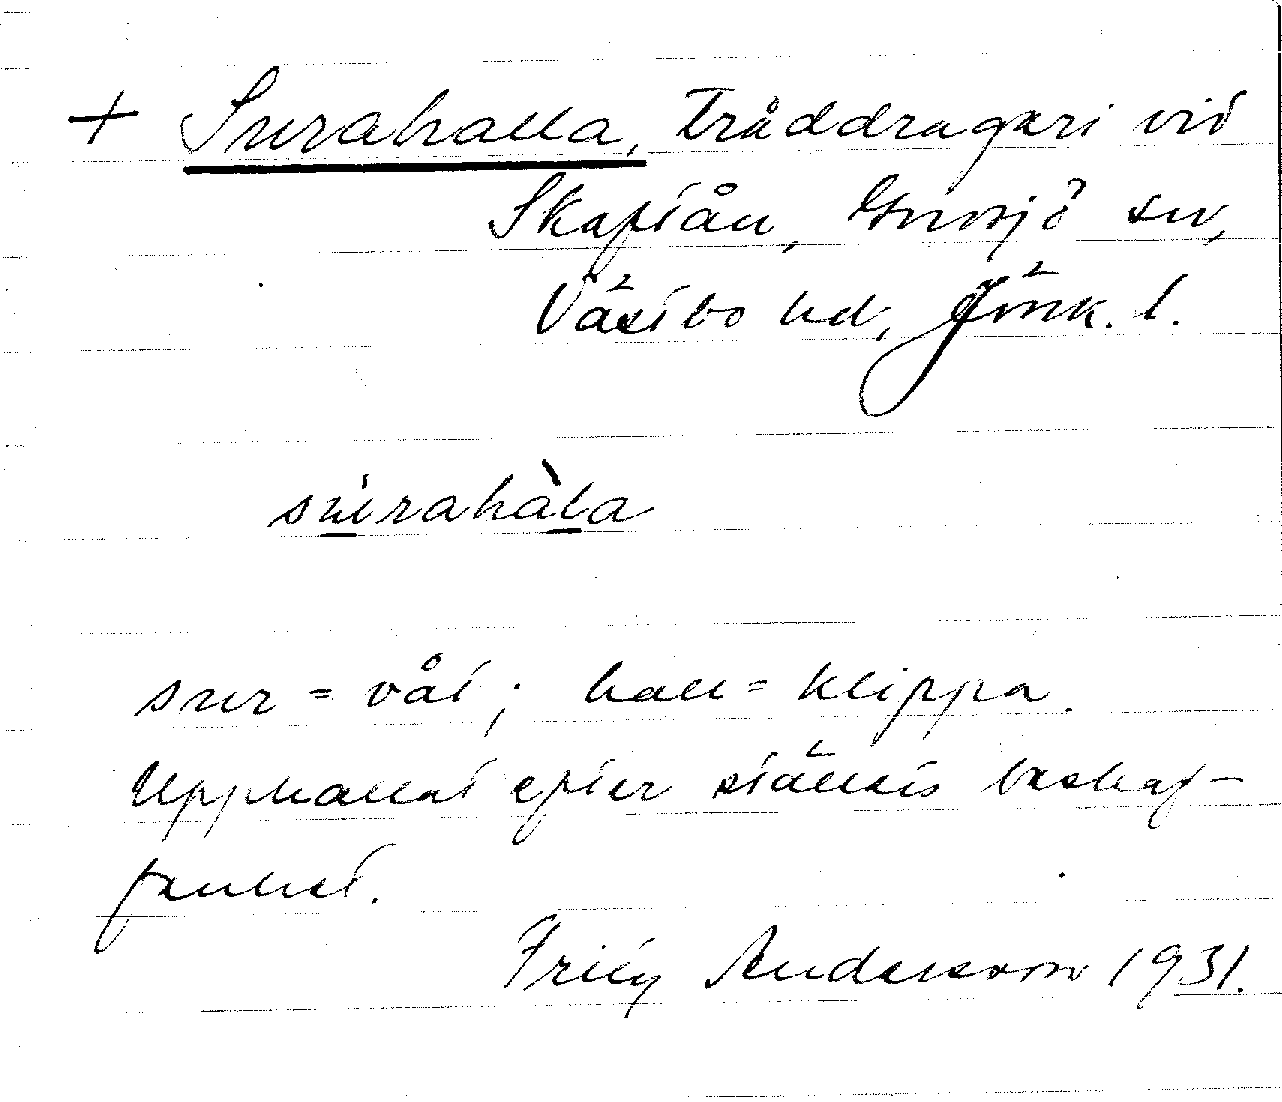 + Surahalla, Tråddrageri vid
Skaftån, Gnosjö sn,
Västbo hd, Jönk. l.
sùrahàla
sur = våt; hall = klippa.
Uppkallat efter ställets beskaf-
fenhet.
Andersson 1931.